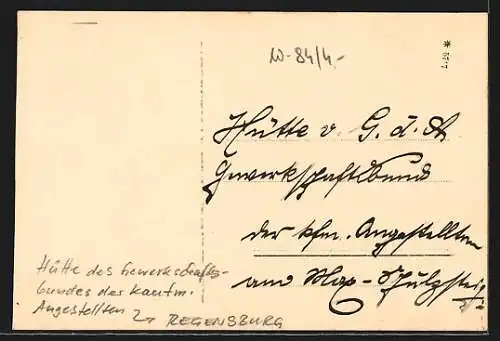 W-84/4,-
Hütte v. G. d. A
Gewerkschaftsbund
der kfm. Angestellten
am Max-Schulzsteig
Hütte des Gewerkschafts-
bundes der Kaufm.
Angestellten
REGENSBURG